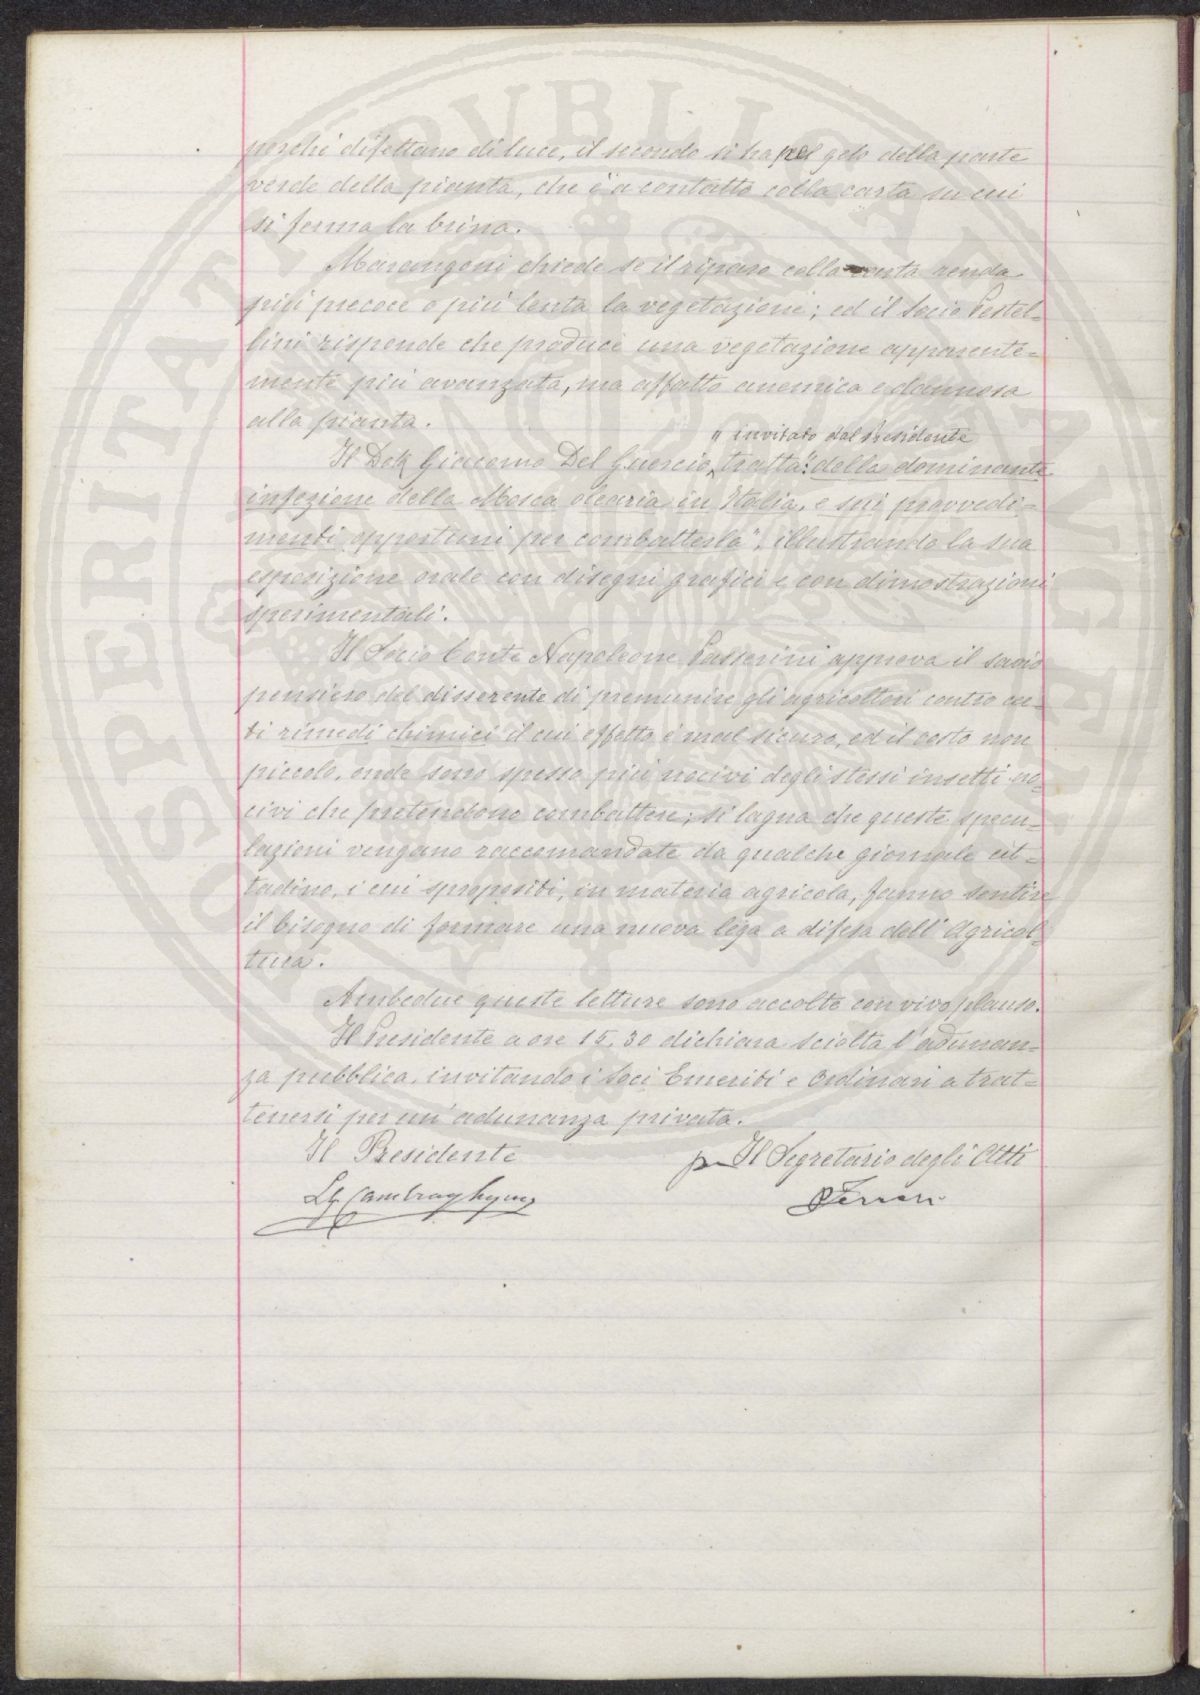 perchè difettano di luce, il secondo si ha pel gelo della parte
verde della pianta, che è a contatto colla carta su cui
si ferma la brina.
Marangoni chiede se il riparo colla carta renda
più precoce o più lenta la vegetazione; ed il Socio Pestel=
lini risponde che produce una vegetazione apparente=
mente più avanzata, ma affatto anemica e dannosa
alla pianta.
" invitato dal Presidente
Il Dott Giacomo Del Guercio, tratta: "della dominante
infezione della Mosca olearia in Italia, e sui provvedi=
menti opportuni per combatterla", illustrando la sua
esposizione orale con disegni grafici e con dimostrazioni
sperimentali.
Il Socio Conte Napoleone Passerini approva il savio
pensiero del disserente di premunire gli agricoltori contro cer=
ti rimedi chimici il cui effetto è mal sicuro, ed il costo non
piccolo, onde sono spesso più nocivi degli stessi insetti no=
civi che pretendono combattere; si lagna che queste specu=
lazioni vengano raccomandate da qualche giornale cit=
tadino, i cui spropositi, in materia agricola, fanno sentire
il bisogno di formare una nuova lega a difesa dell'Agricol=
tura.
Ambedue queste letture sono accolte con vivo plauso.
Il Presidente a ore 15,30 dichiara sciolta l'adunan=
za pubblica, invitando i Soci Emeriti e Ordinari a trat=
tenersi per un'adunanza privata.
Il Presidente
per Il Segretario degli Atti
L. Cambray Digny
P Ferrari
PROSPERITATI PUBLICAE AUGENDAE